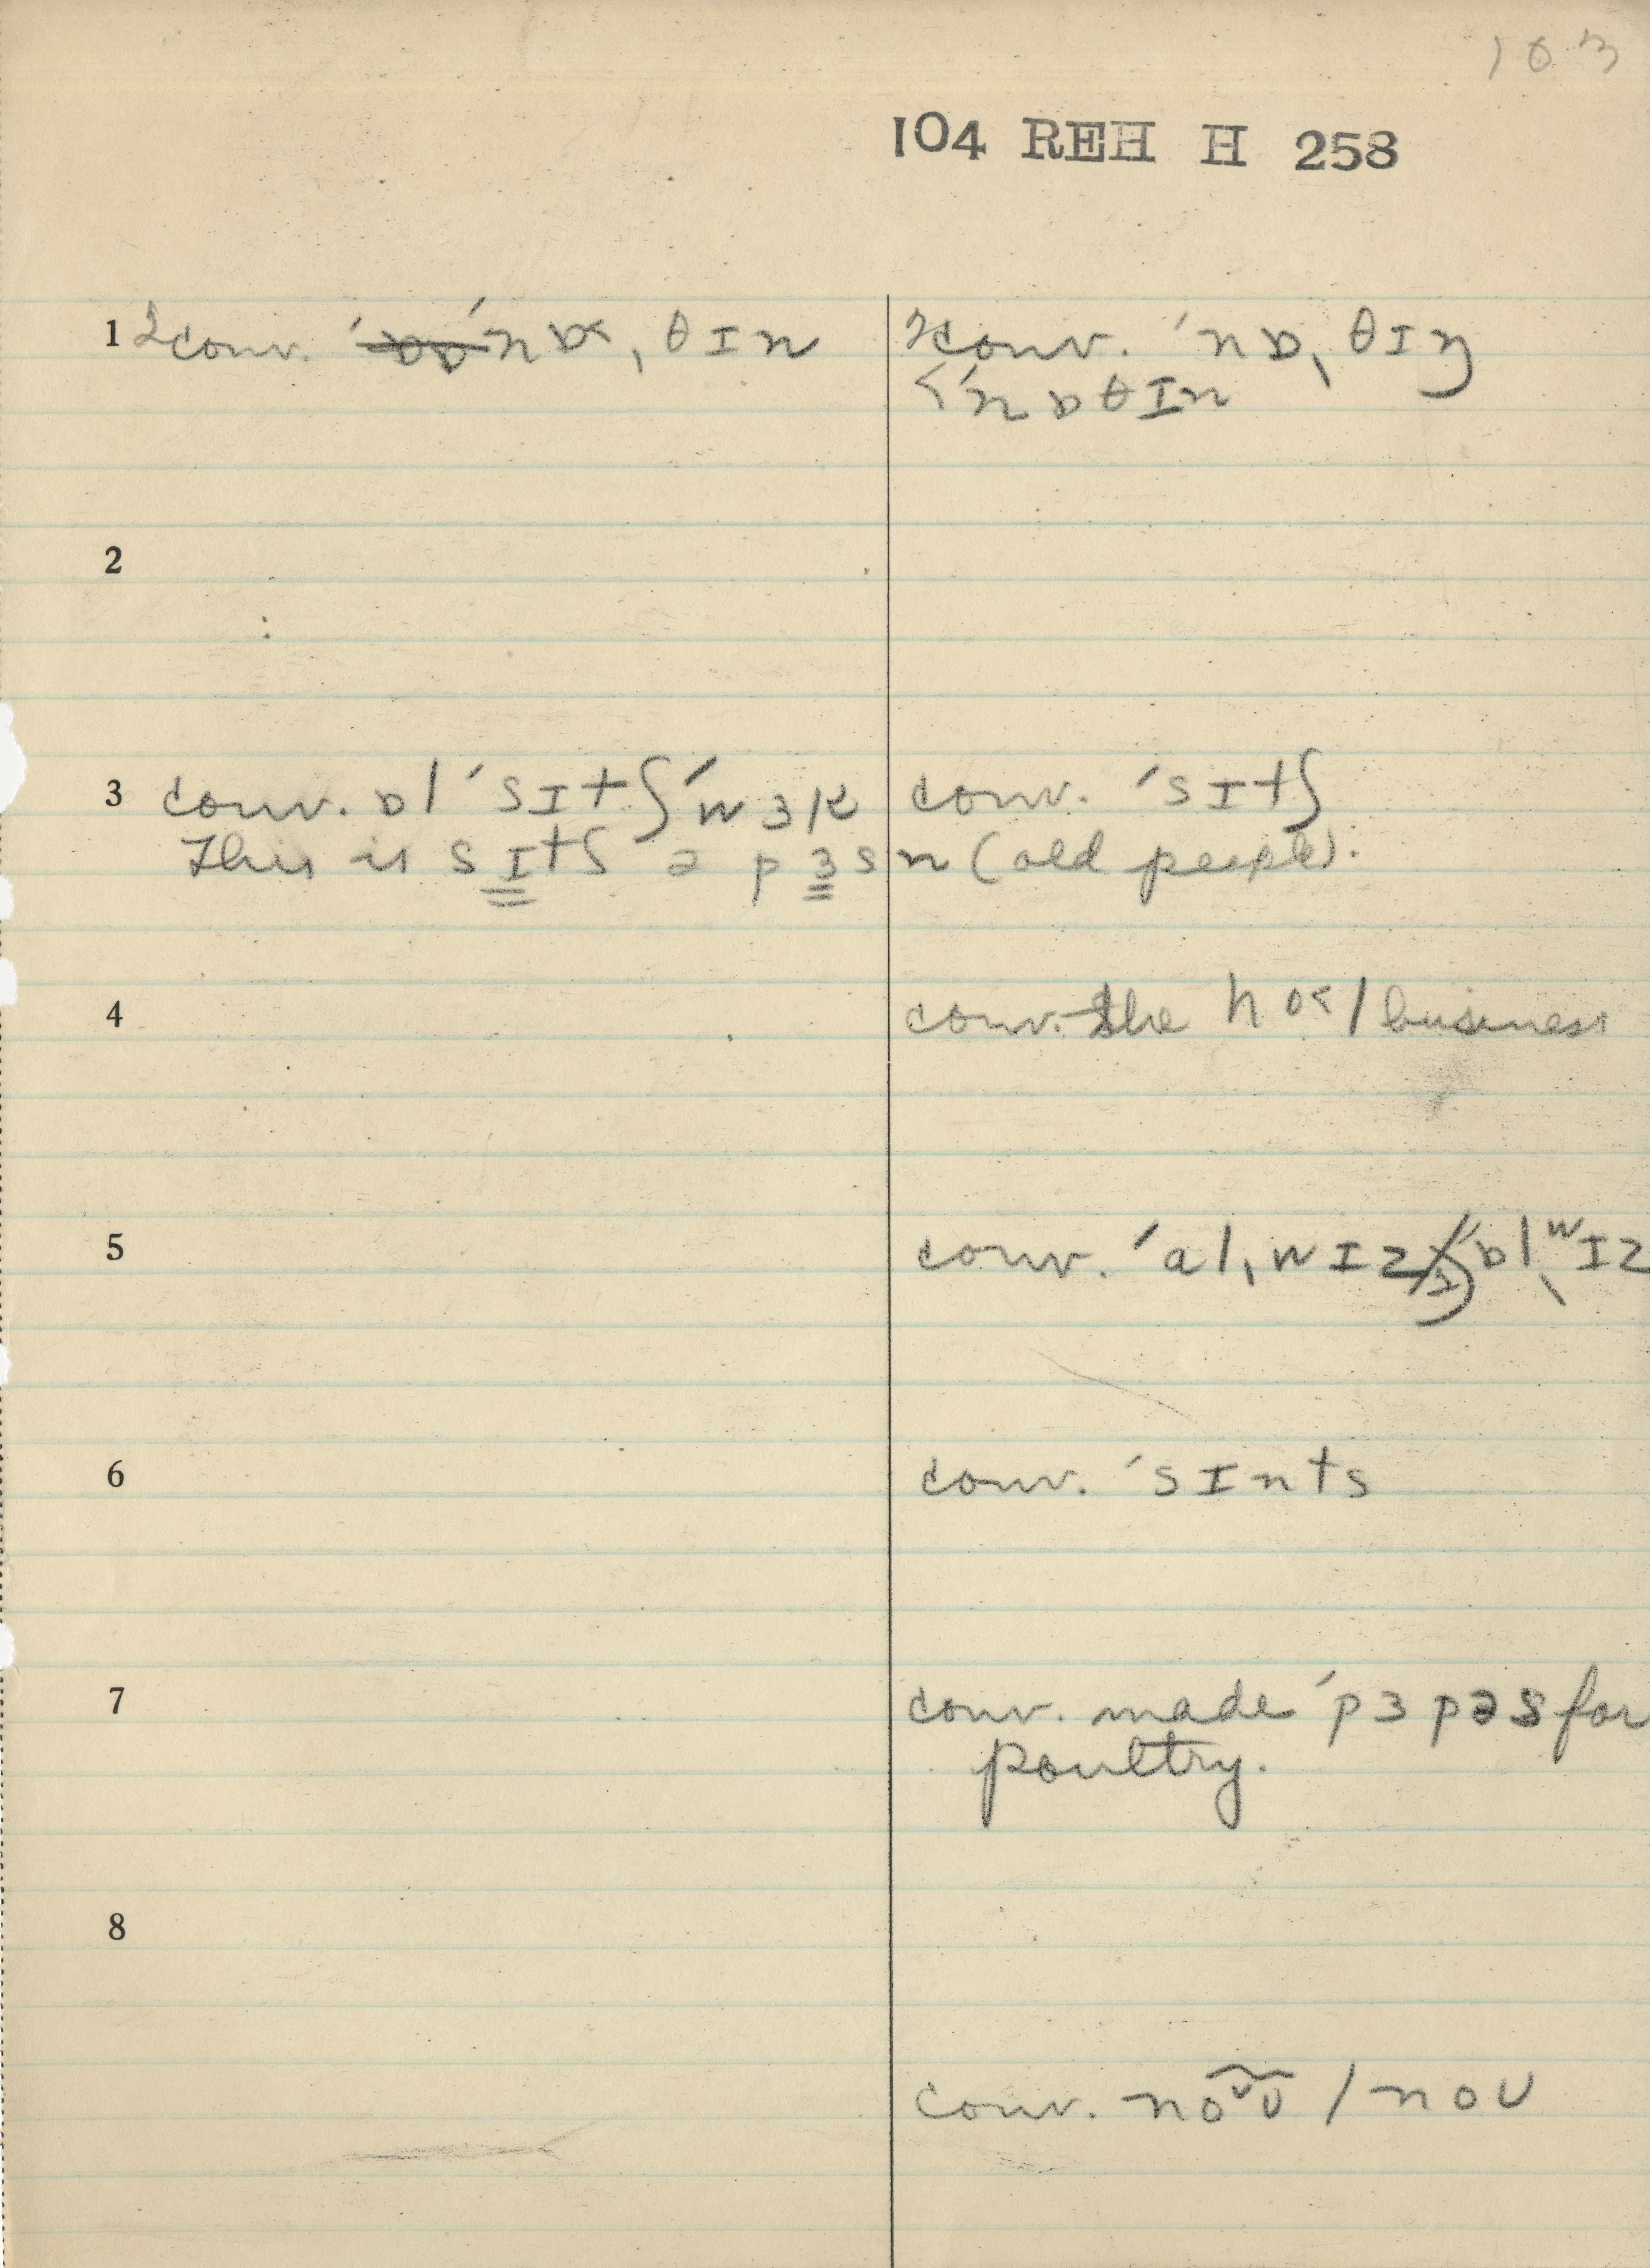 103
104 REH H 258
1 2conv. ˈnɒ˂ˌθɪn
2conv. ˈnɒˌθɪŋ
<ˈnɒθɪn
2
3 conv. ɒl ˈsɪtʃ ˈwɜk
conv. ˈsɪtʃ
This is sɪtʃ ə pɜsn (old people).
4 conv. the hɒ˂l business
5 conv. ˈalˌwɪz ˈɒlˌwɪz
6 conv. ˈsɪnts
7 conv. made ˈpɜpəs for
poultry.
8
conv. / noʊ